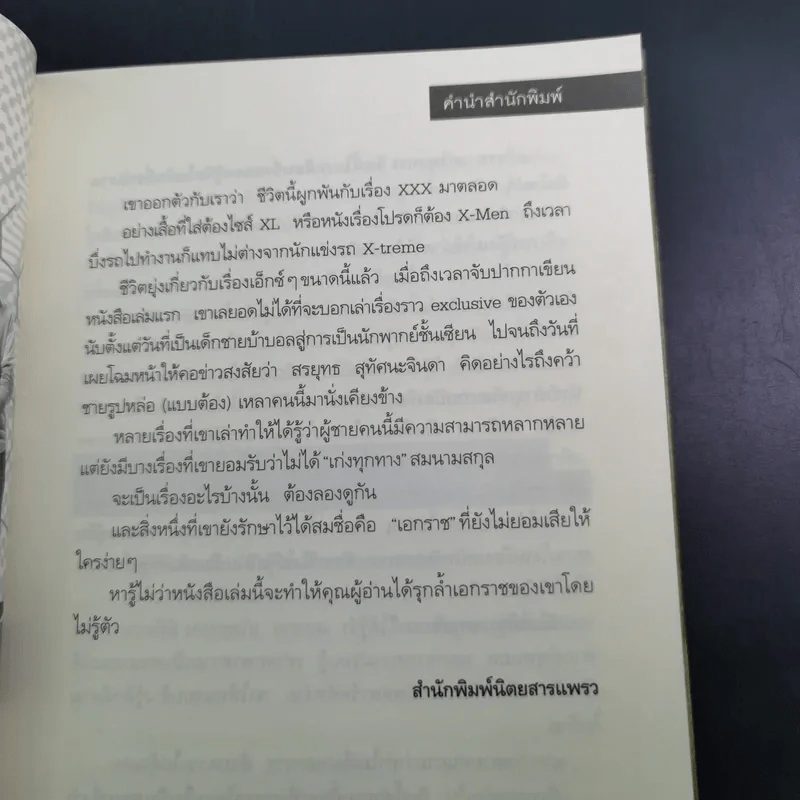 คำนำสำนักพิมพ์
เขาออกตัวกับเราว่า ชีวิตนี้ผูกพันกับเรื่อง XXX มาตลอด
อย่างเสื้อที่ใส่ต้องไซส์ XL หรือหนังเรื่องโปรดก็ต้อง X-Men ถึงเวลา
บึ่งรถไปทำงานก็แทบไม่ต่างจากนักแข่งรถ X-treme
ชีวิตยุ่งเกี่ยวกับเรื่องเอ็กซ์ๆ ขนาดนี้แล้ว เมื่อถึงเวลาจับปากกาเขียน
หนังสือเล่มแรก เขาเลยอดไม่ได้ที่จะบอกเล่าเรื่องราว exclusive ของตัวเอง
นับตั้งแต่วันที่เป็นเด็กชายบ้าบอลสู่การเป็นนักพากย์ชั้นเซียน ไปจนถึงวันที่
เผยโฉมหน้าให้คอข่าวสงสัยว่า สรยุทธ สุทัศนะจินดา คิดอย่างไรถึงคว้า
ชายรูปหล่อ (แบบต้อง) เหลาคนนี้มานั่งเคียงข้าง
หลายเรื่องที่เขาเล่าทำให้ได้รู้ว่าผู้ชายคนนี้มีความสามารถหลากหลาย
แต่ยังมีบางเรื่องที่เขายอมรับว่าไม่ได้ “เก่งทุกทาง” สมนามสกุล
จะเป็นเรื่องอะไรบ้างนั้น ต้องลองดูกัน
และสิ่งหนึ่งที่เขายังรักษาไว้ได้สมชื่อคือ “เอกราช” ที่ยังไม่ยอมเสียให้
ใครง่ายๆ
หารู้ไม่ว่าหนังสือเล่มนี้จะทำให้คุณผู้อ่านได้รุกล้ำเอกราชของเขาโดย
ไม่รู้ตัว
สำนักพิมพ์นิตยสารแพรว